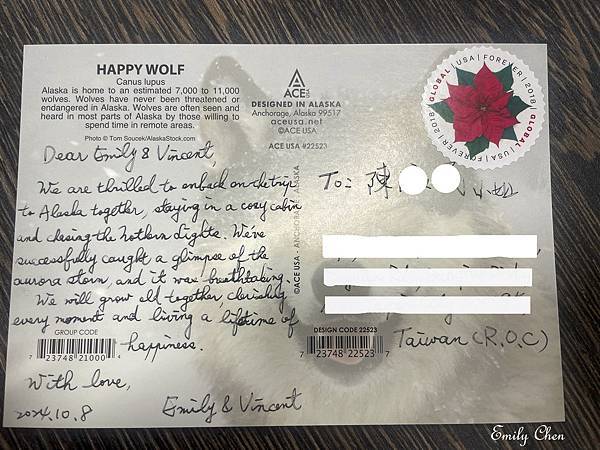 HAPPY WOLF
Canus lupus
Alaska is home to an estimated 7,000 to 11,000
wolves. Wolves have never been threatened or
endangered in Alaska. Wolves are often seen and
heard in most parts of Alaska by those willing to
spend time in remote areas.
Photo © Tom Soucek/AlaskaStock.com
ACE
USA
DESIGNED IN ALASKA
Anchorage, Alaska 99517
aceusa.net
©ACE USA
ACE USA #22523
GLOBAL | USA | FOREVER | 2018 | GLOBAL | USA | FOREVER | 2018
Dear Emily & Vincent,
We are thrilled to embark on the trip
to Alaska together, staying in a cozy cabin
and chasing the Nothern Lights. We've
successfully caught a glimpse of the
aurora storm, and it was breathtaking.
We will grow old together, cherishing
every moment and living a lifetime of
happiness.
With love,
2024.10.8
Emily & Vincent
©ACE USA - ANCHORAGE - ALASKA
To: 陳 小姐
Taiwan (R.O.C)
GROUP CODE
7 23748 21000 4
DESIGN CODE 22523
7 23748 22523 7
Emily Chen